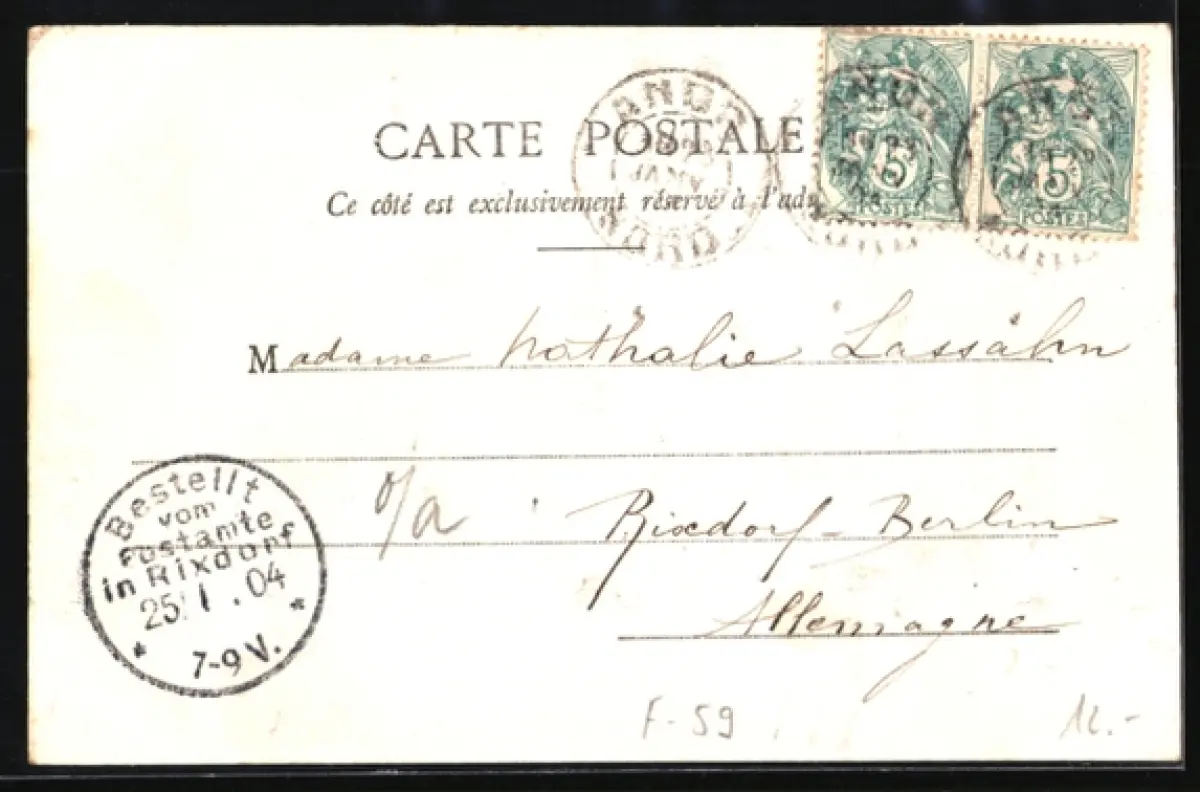 CARTE POSTALE
Ce côté est exclusivement réservé à l'ad
5
POSTES
5
POSTES
JANV
NORD
Madame Nathalie Lassáhn
o/a Rixdorf-Berlin
Allemagne
Bestellt
vom
Postamte
in Rixdorf
25.1.04
7-9 V.
F-59
12.-